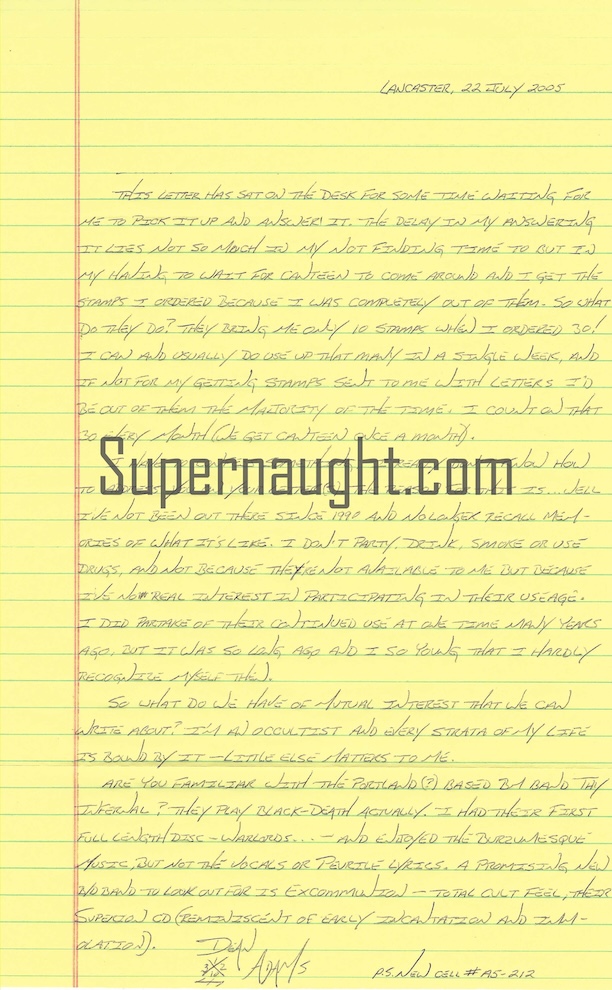 LANCASTER, 22 JULY 2005
THIS LETTER HAS SAT ON THE DESK FOR SOME TIME WAITING FOR
ME TO PICK IT UP AND ANSWER IT. THE DELAY IN MY ANSWERING
IT LIES NOT SO MUCH IN MY NOT FINDING TIME TO BUT IN
MY HAVING TO WAIT FOR CANTEEN TO COME AROUND AND I GET THE
STAMPS I ORDERED BECAUSE I WAS COMPLETELY OUT OF THEM. SO WHAT
DO THEY DO? THEY BRING ME ONLY 10 STAMPS WHEN I ORDERED 30!
I CAN AND USUALLY DO USE UP THAT MANY IN A SINGLE WEEK, AND
IF NOT FOR MY GETTING STAMPS SENT TO ME WITH LETTERS I'D
BE OUT OF THEM THE MAJORITY OF THE TIME. I COUNT ON THAT
30 EVERY MONTH (WE GET CANTEEN ONCE A MONTH).
KNOW HOW
Supernaught.com
TO IS... WELL
I'VE NOT BEEN OUT THERE SINCE 1990 AND NO LONGER RECALL MEM-
ORIES OF WHAT IT'S LIKE. I DON'T PARTY, DRINK, SMOKE OR USE
DRUGS, AND NOT BECAUSE THEY'RE NOT AVAILABLE TO ME BUT BECAUSE
I'VE NO REAL INTEREST IN PARTICIPATING IN THEIR USEAGE.
I DID PARTAKE OF THEIR CONTINUED USE AT ONE TIME MANY YEARS
AGO, BUT IT WAS SO LONG AGO AND I SO YOUNG THAT I HARDLY
RECOGNIZE MYSELF THEN.
SO WHAT DO WE HAVE OF MUTUAL INTEREST THAT WE CAN
WRITE ABOUT? I'M AN OCCULTIST AND EVERY STRATA OF MY LIFE
IS BOUND BY IT – LITTLE ELSE MATTERS TO ME.
ARE YOU FAMILIAR WITH THE PORTLAND(?) BASED BM BAND THY
INFERNAL? THEY PLAY BLACK-DEATH ACTUALLY. I HAD THEIR FIRST
FULL LENGTH DISC – WARLORDS... – AND ENJOYED THE BURZUMESQUE
MUSIC, BUT NOT THE VOCALS OR PEURILE LYRICS. A PROMISING NEW
BAND TO LOOK OUT FOR IS EXCOMMUNION – TOTAL CULT FEEL, THEIR
SUPERION CD (REMINISCENT OF EARLY INCANTATION AND IMM-
OLATION).
DEAN
ADAMS
P.S. NEW CELL # A5-212